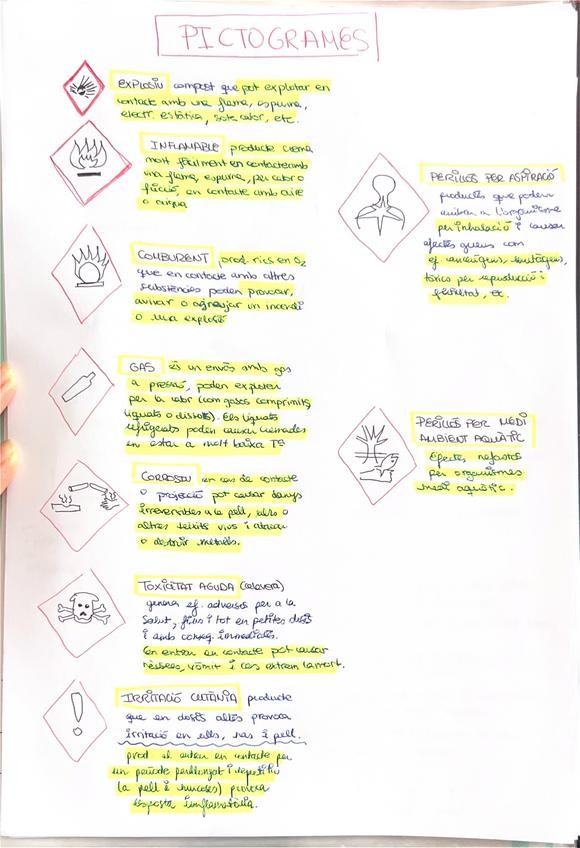 PICTOGRAMES
EXPLOSIU compost que pot explotar en
contacte amb una flama, espurna,
electr. estàtica, sota calor, etc.
INFLAMABLE producte crema
molt fàcilment en contacte amb
una flama, espurna, per calor o
fricció, en contacte amb aire
o aigua
COMBURENT prod. rics en O2
que en contacte amb altres
substàncies poden provocar,
avivar o agreujar un incendi
o una explosió
GAS és un envàs amb gas
a pressió, poden explotar
per la calor (com gasos comprimits,
liquats o dissolts). Els liquats
refrigerats poden causar cremades
en estar a molt baixa Tª
CORROSIU en cas de contacte
o projecció pot causar danys
irreversibles a la pell, ulls o
altres teixits vius i atacar
o destruir metalls.
TOXICITAT AGUDA (calavera)
genera ef. adversos per a la
salut, fins i tot en petites dosis
i amb conseq. immediates.
En entrar en contacte pot causar
nàusees, vòmit i cas extrem la mort.
IRRITACIÓ CUTÀNIA producte
que en dosis altes provoca
irritació en ulls, nas i pell.
prod al entrar en contacte per
un període perllongat i repetitiu
(a pell i mucoses) provoca
resposta inflamatòria.
PERILLÓS PER ASPIRACIÓ
productes que poden
entrar a l'organisme
per inhalació i causar
efectes greus com
ef. cancerígens, mutàgens,
tòxics per reproducció i
fertilitat, etc.
PERILLÓS PER MEDI
AMBIENT AQUÀTIC
Efectes nefastos
per organismes
medi aquàtic.